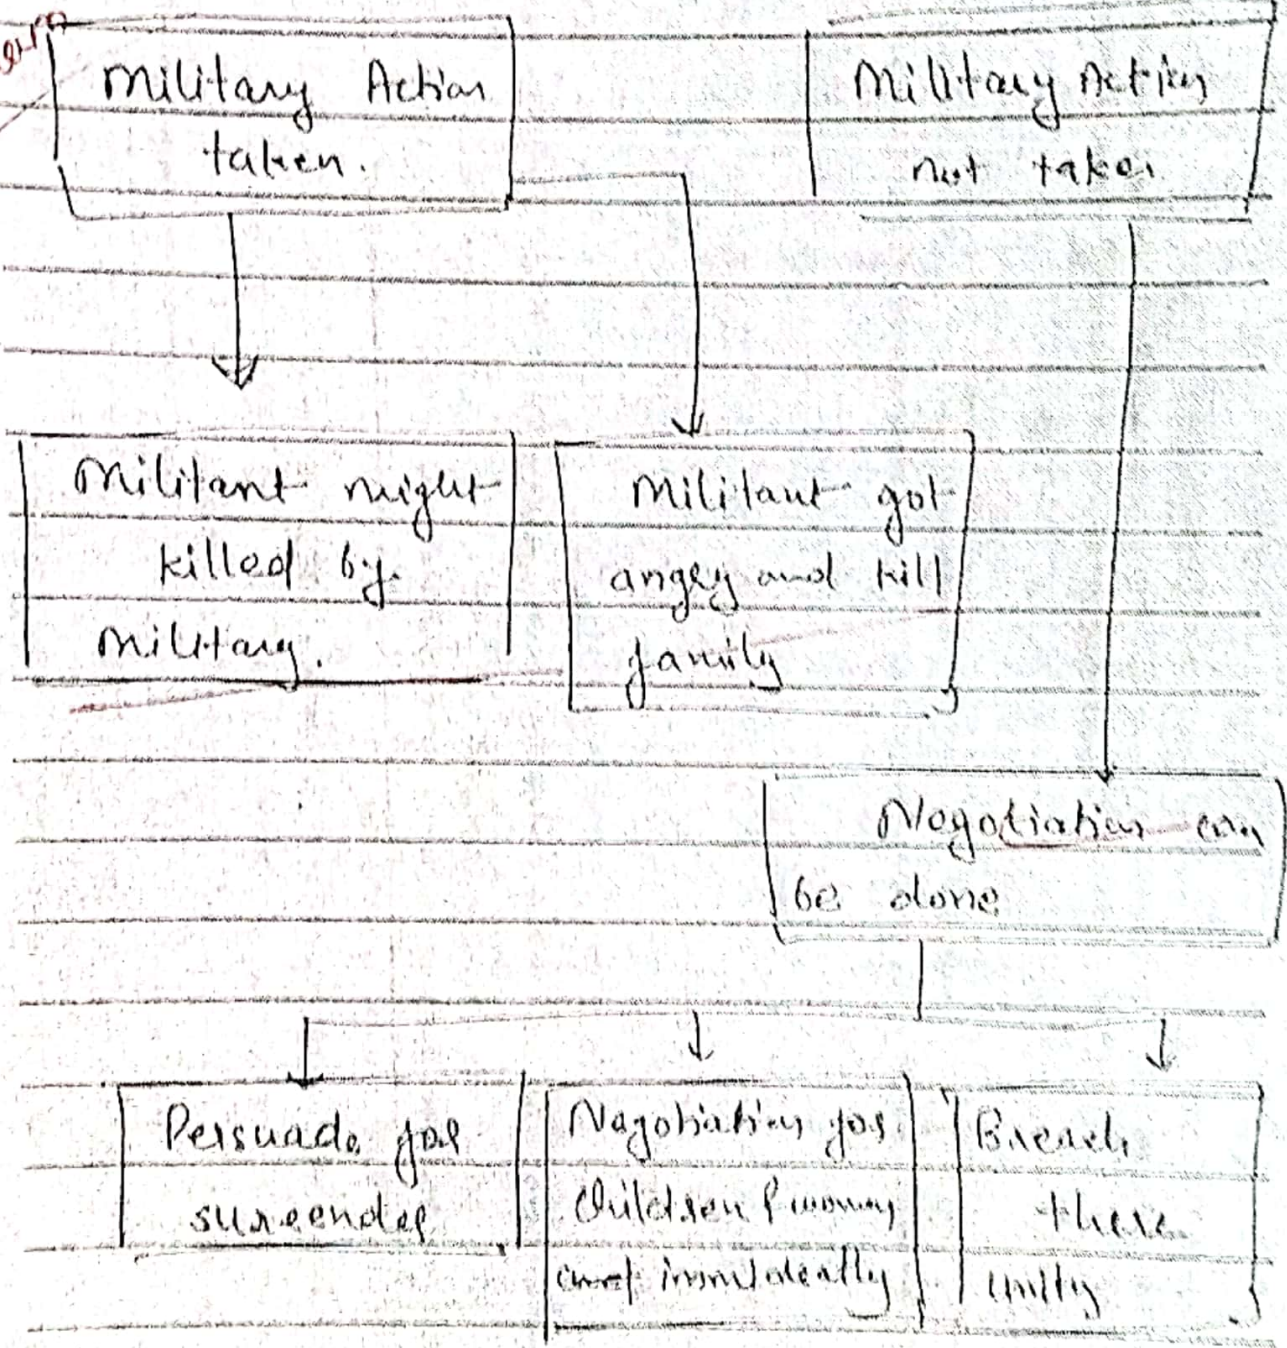 Military Action
taken.
Military Action
not taken
Militant might
killed by
military.
Militant got
angry and kill
family
Negotiation can
be done
Persuade for
sureender
Negotiation for
children & women
immideatly
Breach
there
unity